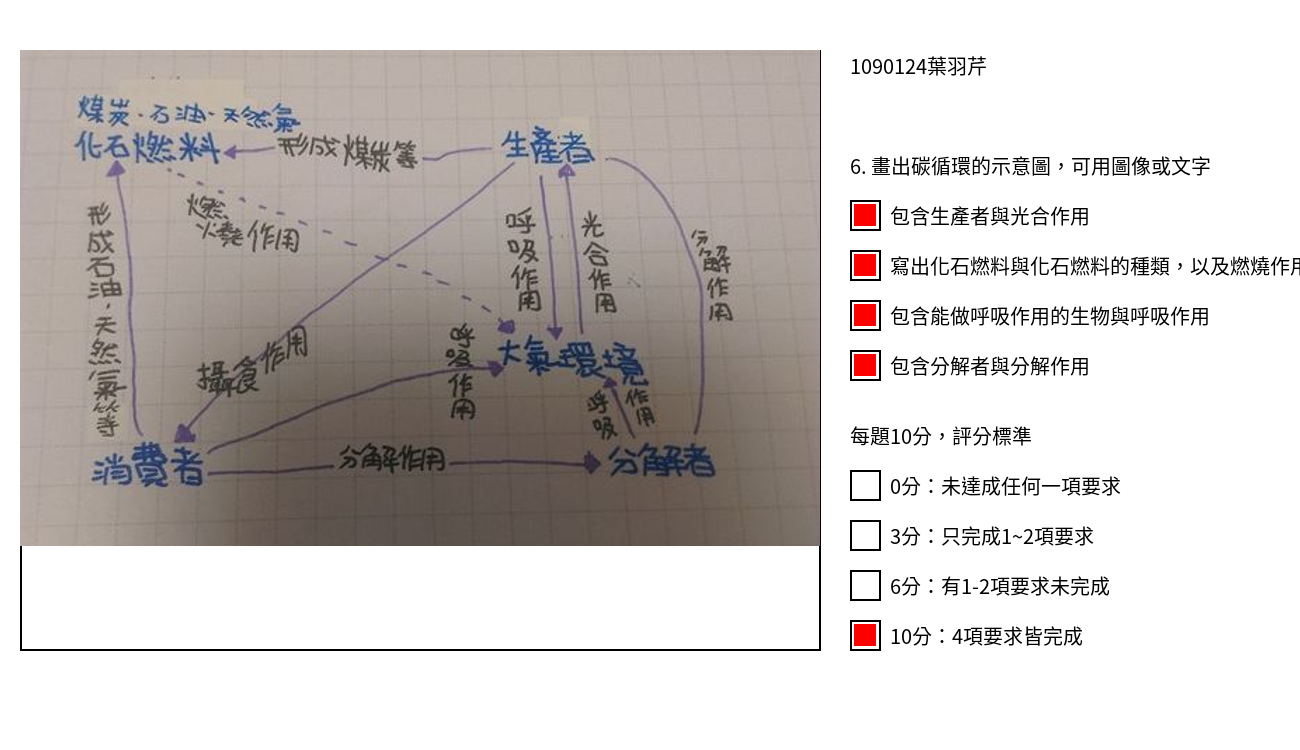 煤炭、石油、天然氣
化石燃料
形成煤炭等
生產者
燃燒作用
形成石油,天然氣等
呼吸作用
光合作用
分解作用
攝食作用
呼吸作用
大氣環境
呼吸作用
消費者
分解作用
分解者
1090124葉羽芹
6. 畫出碳循環的示意圖,可用圖像或文字
包含生產者與光合作用
寫出化石燃料與化石燃料的種類,以及燃燒作用
包含能做呼吸作用的生物與呼吸作用
包含分解者與分解作用
每題10分,評分標準
0分:未達成任何一項要求
3分:只完成1~2項要求
6分:有1-2項要求未完成
10分:4項要求皆完成